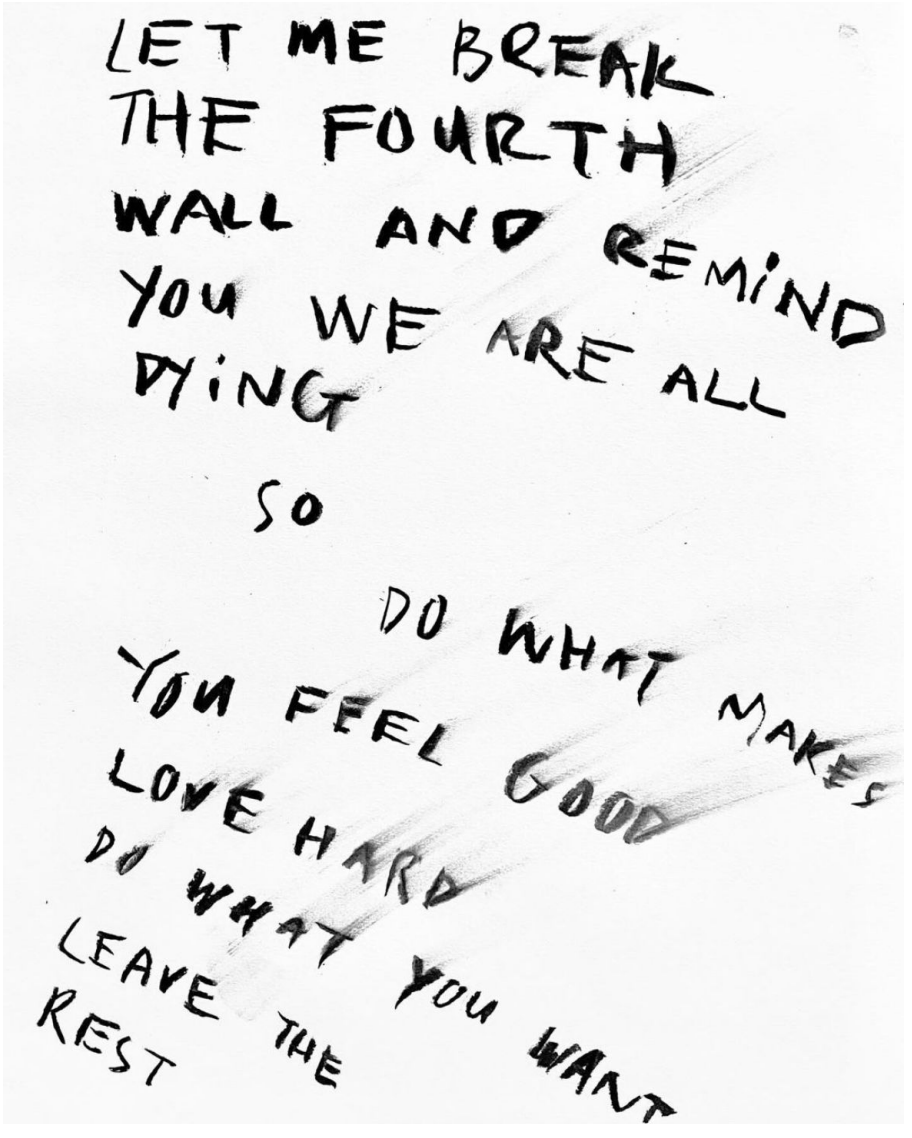 LET ME BREAK
THE FOURTH
WALL AND REMIND
YOU WE ARE ALL
DYiNG
SO
DO WHAT MAKES
YOU FEEL GOOD
LOVE HARD
DO WHAT YOU WANT
LEAVE THE
REST